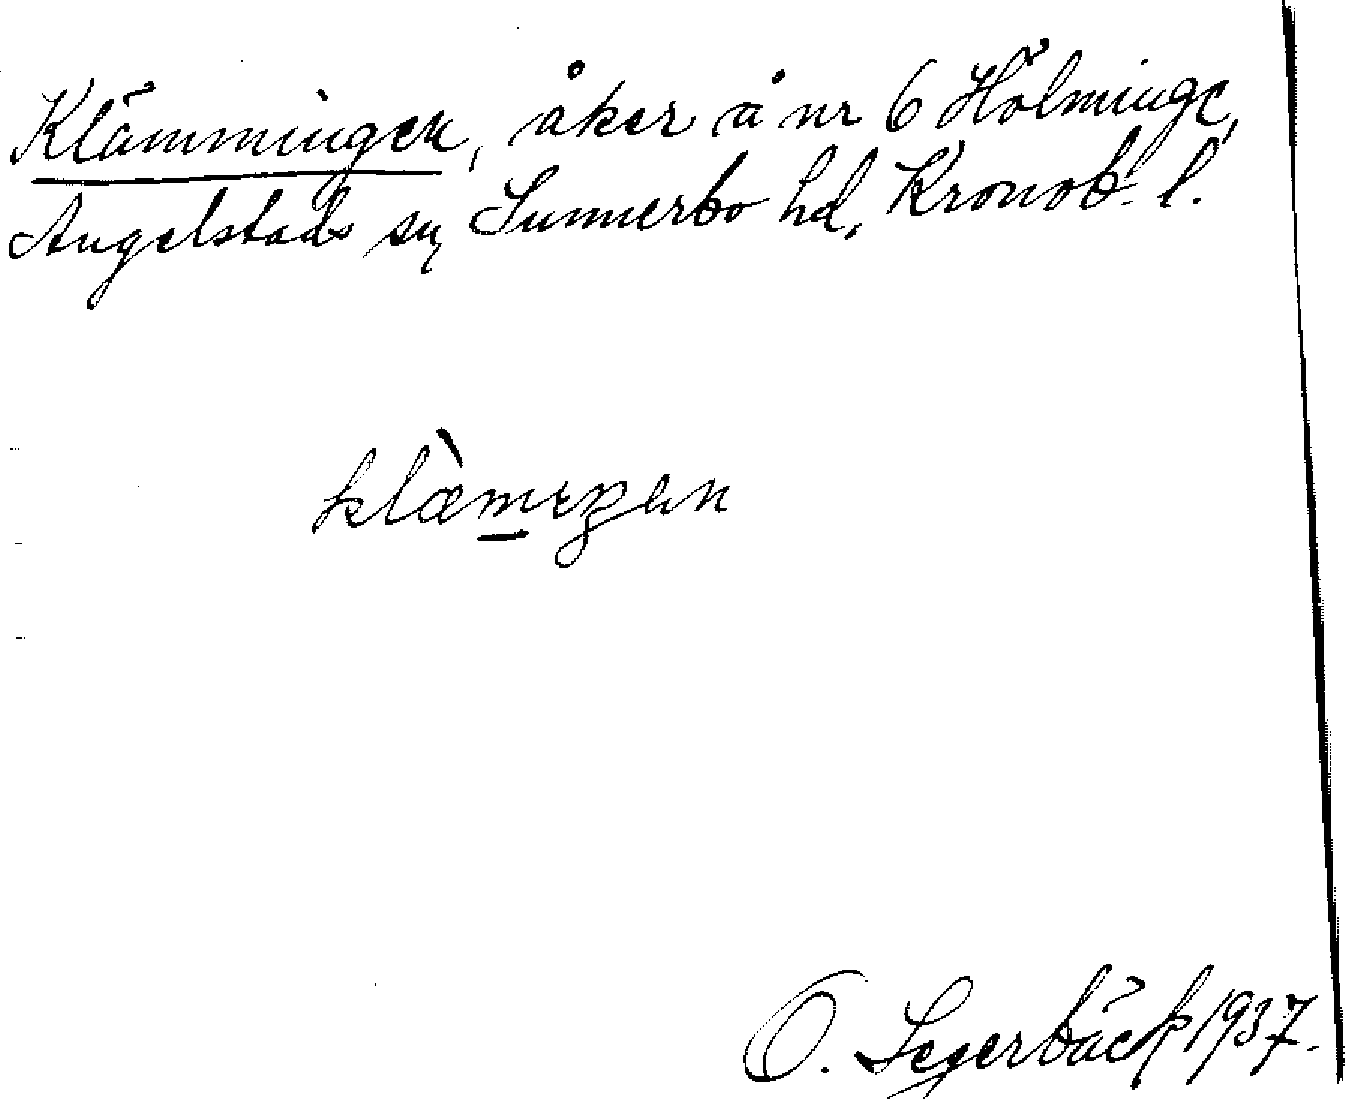 Klämmingen, åker å nr 6 Hölminge,
Angelstads sn, Sunnerbo hd, Kronob. l.
klæ̀mıŋen
O. Segerbäck 1937.